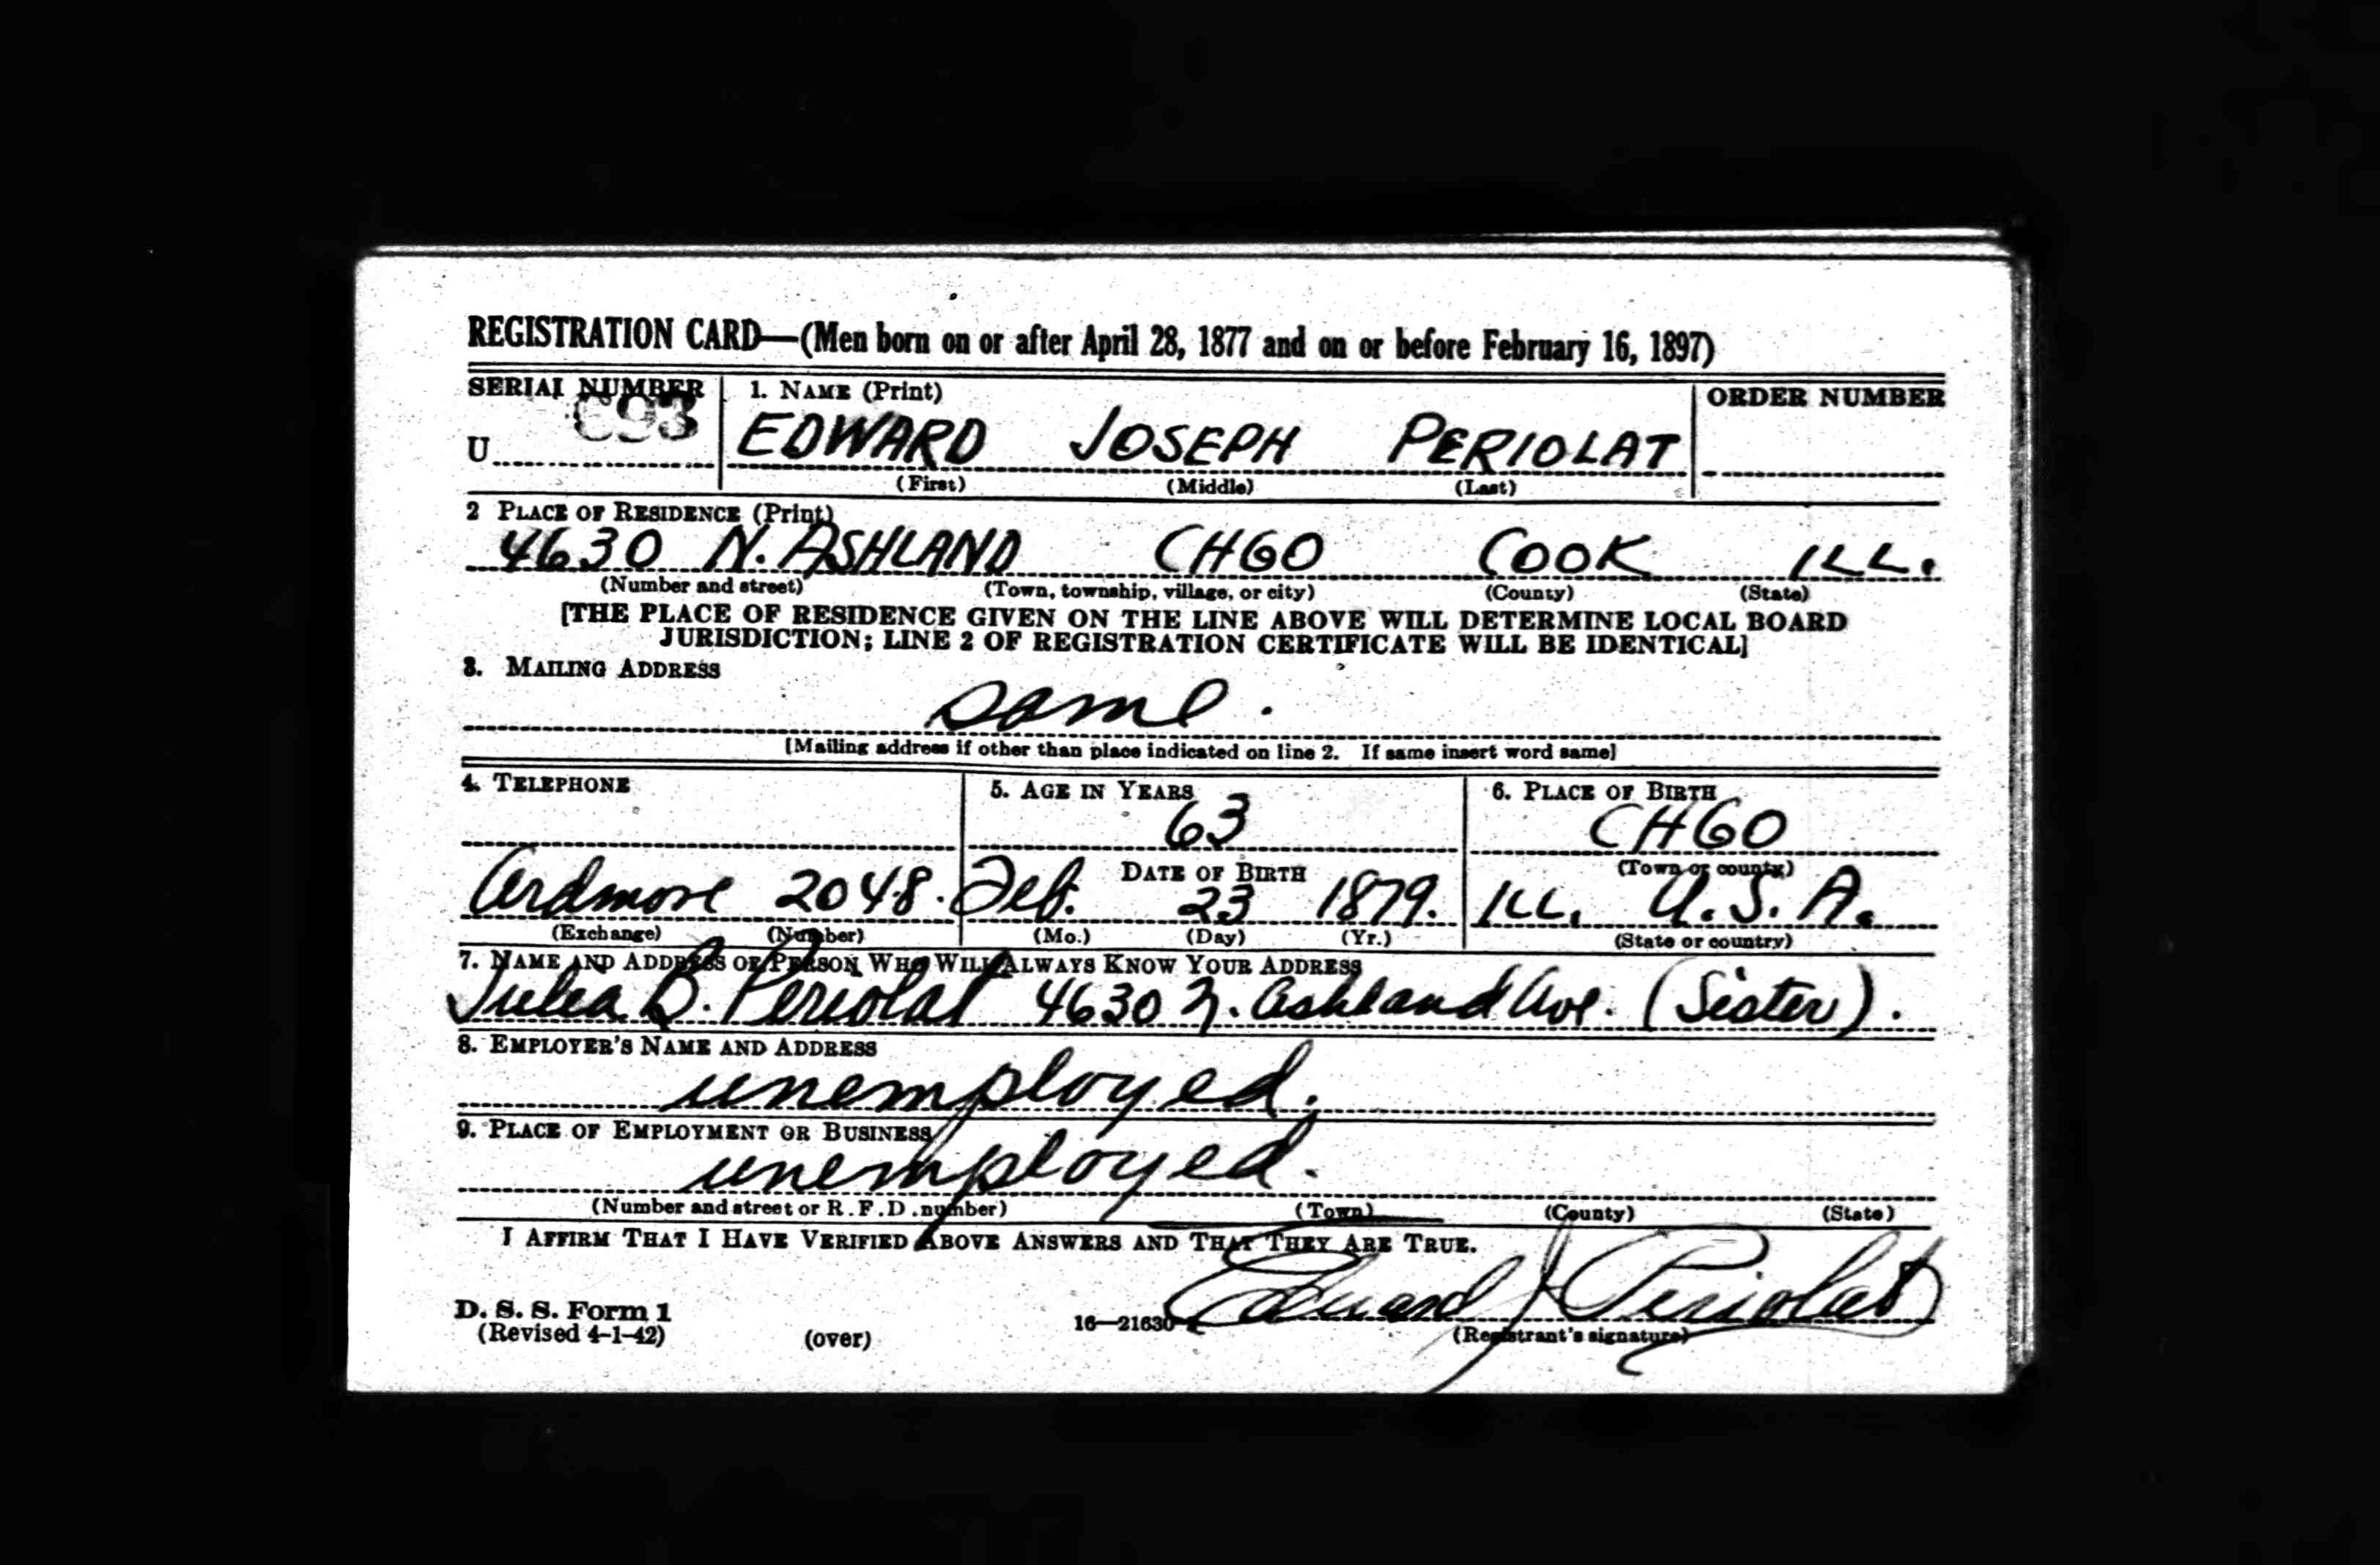 REGISTRATION CARD—(Men born on or after April 28, 1877 and on or before February 16, 1897)
SERIAL NUMBER 1. NAME (Print) ORDER NUMBER
U 693 EDWARD JOSEPH PERIOLAT
(First) (Middle) (Last)
2 PLACE OF RESIDENCE (Print)
4630 N. ASHLAND CHGO COOK ILL.
(Number and street) (Town, township, village, or city) (County) (State)
[THE PLACE OF RESIDENCE GIVEN ON THE LINE ABOVE WILL DETERMINE LOCAL BOARD
JURISDICTION; LINE 2 OF REGISTRATION CERTIFICATE WILL BE IDENTICAL]
3. MAILING ADDRESS
same.
[Mailing address if other than place indicated on line 2. If same insert word same]
4. TELEPHONE 5. AGE IN YEARS 6. PLACE OF BIRTH
63 CHGO
DATE OF BIRTH (Town or county)
Ardmore 2048. Feb. 23 1879. ILL. U.S.A.
(Exchange) (Number) (Mo.) (Day) (Yr.) (State or country)
7. NAME AND ADDRESS OF PERSON WHO WILL ALWAYS KNOW YOUR ADDRESS
Julia B. Periolat 4630 N. Ashland Ave. (Sister).
8. EMPLOYER'S NAME AND ADDRESS
unemployed.
9. PLACE OF EMPLOYMENT OR BUSINESS
unemployed.
(Number and street or R.F.D. number) (Town) (County) (State)
I AFFIRM THAT I HAVE VERIFIED ABOVE ANSWERS AND THAT THEY ARE TRUE.
Edward J Periolat
D. S. S. Form 1 16—21630
(Revised 4-1-42) (over) (Registrant's signature)